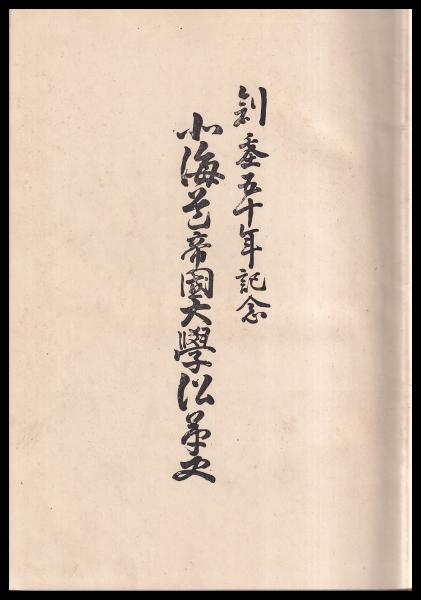 創基五十年記念
北海道帝國大學沿革史